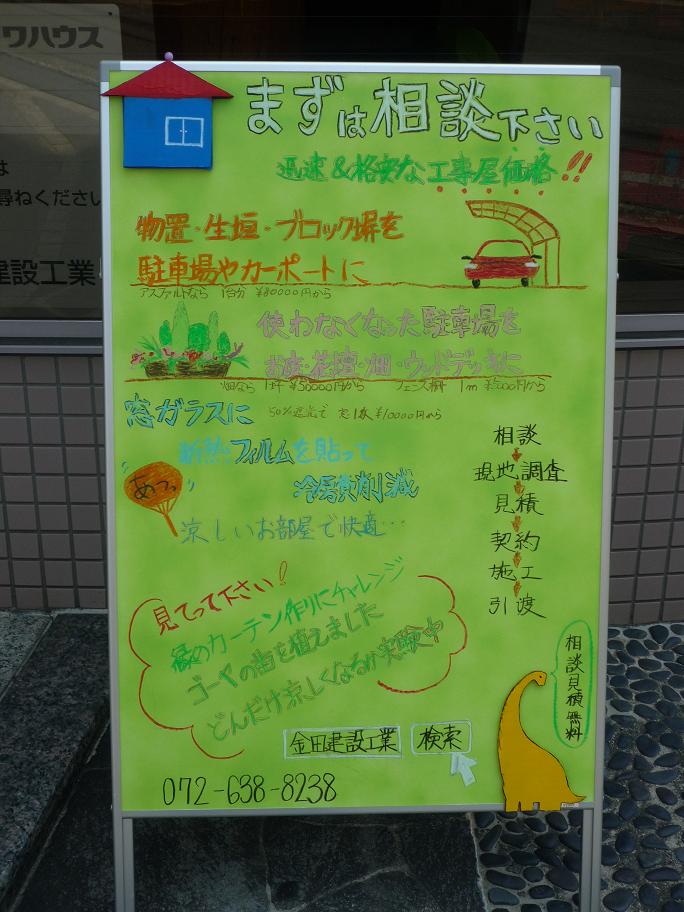 ワハウス
は
尋ねください
建設工業
まずは相談下さい
迅速&格安な工事屋価格!!
物置・生垣・ブロック塀を
駐車場やカーポートに
アスファルトなら 1台分 ¥80000円から
使わなくなった駐車場を
お庭・花壇・畑・ウッドデッキに
畑なら 1坪 ¥30000円から フェンス 1m から
窓ガラスに
50%遮光で 窓1枚 ¥10000円から
断熱フィルムを貼って
冷房費削減
あつっ
涼しいお部屋で快適…
相談
現地調査
見積
契約
施工
引渡
見てって下さい!
緑のカーテン作りにチャレンジ
ゴーヤの苗を植えました
どんだけ涼しくなるか実験中
相談見積無料
金田建設工業 検索
072-638-8238